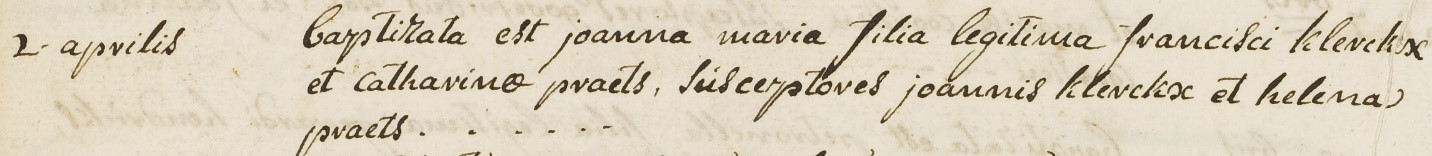 2 aprilis baptizata est joanna maria filia legitima francisci klerckx
et catharinæ praets, süsceptores joannis klerckx et helena
praets . . . . . .